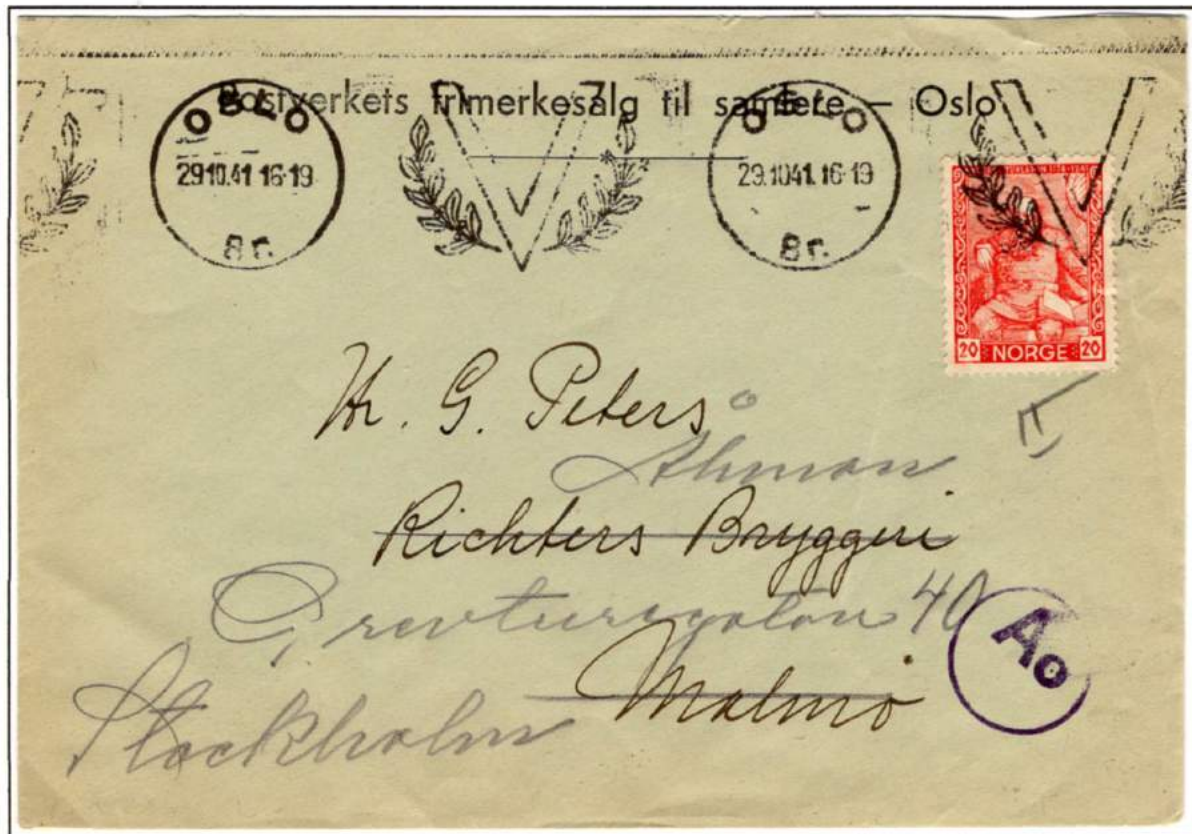 Postverkets frimerkesalg til samlere – Oslo
OSLO
29.10.41 16-19
Br.
OSLO
29.10.41. 16-19
Br.
V
V
20 NORGE 20
Hr. G. Peters
Åhman
II
Richters Bryggeri
Grevturegatan 40
Ao
Malmö
Stockholm